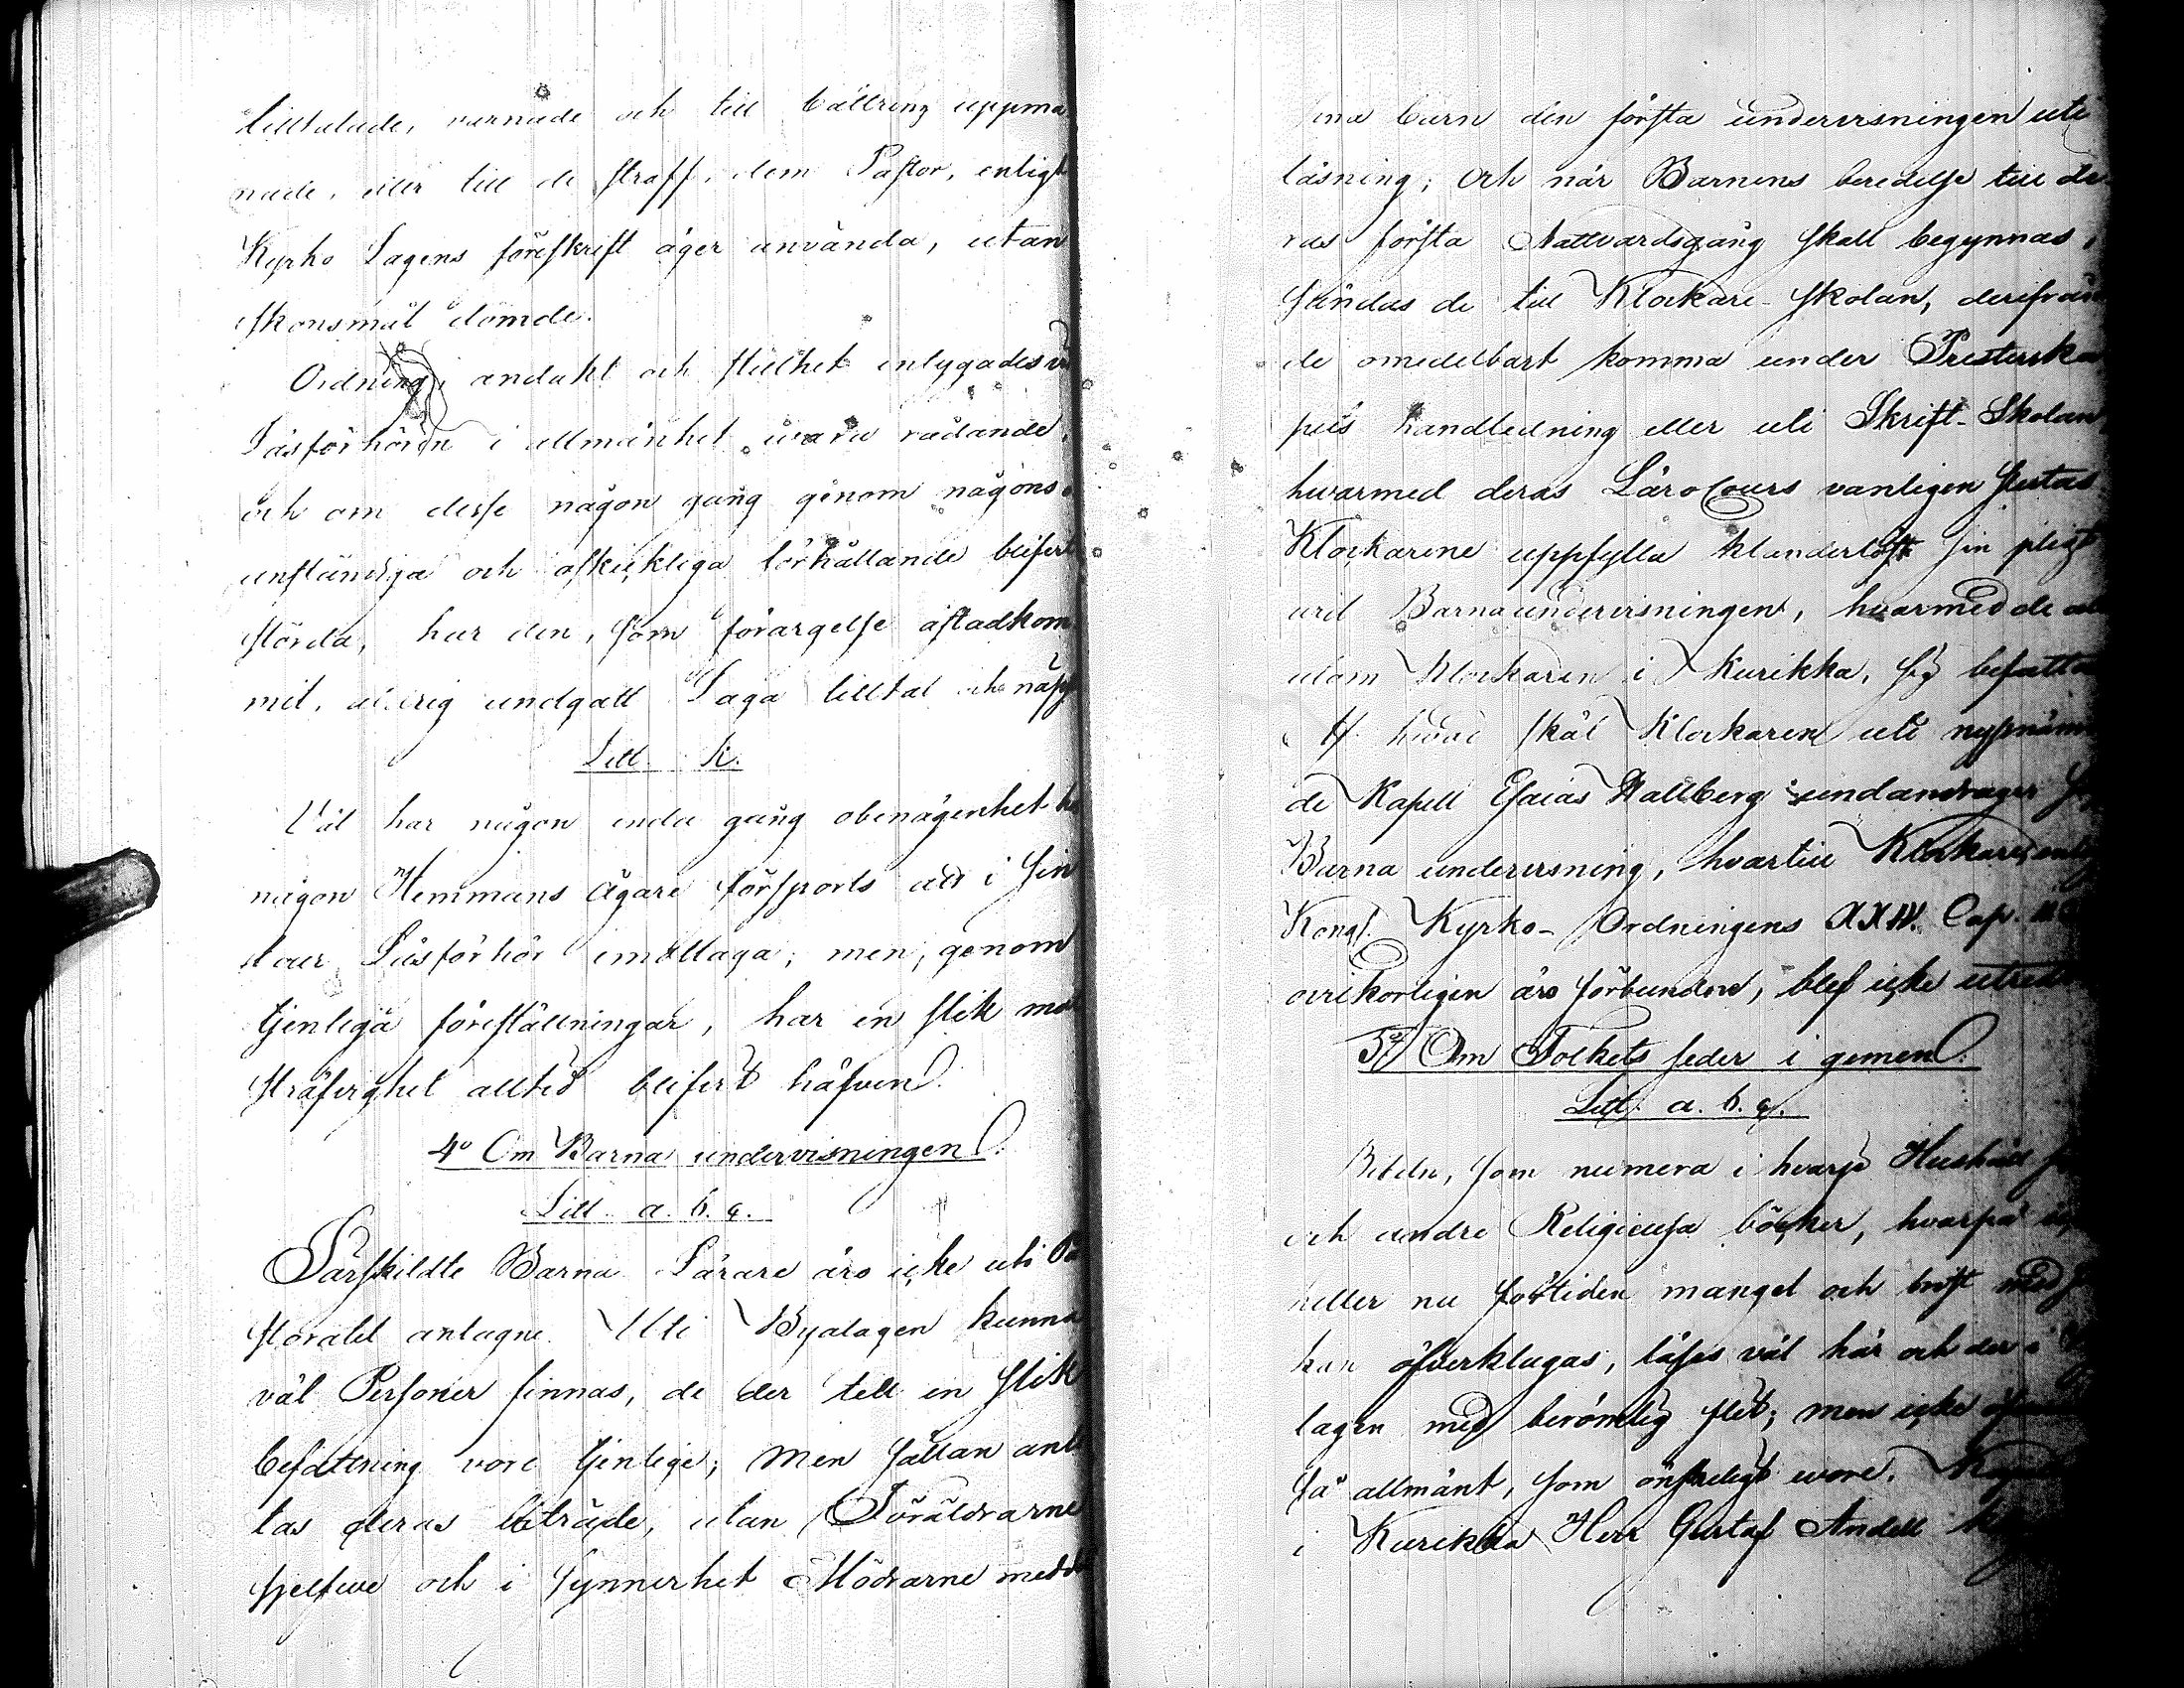 tilltalade, varnade och till bättring uppma
nade, eller till de straff, dem Pastor, enligt
Kyrko Lagens föreskrift äger använda, utan
skonsmål dömde.
Ordning, andakt och stillhet
Läsförhören i allmänhet wara rådande,
och om desse någon gång genom någons o
anständiga och oskickliga förhållande blifvit
störda, har den, som förargelse åstadkom
mit, aldrig undgått Laga tilltal och näpst
Litt. k.
Väl har någon enda gång obenägenhet ho
någon Hemmans ägare försports att i sin
tour Läsförhör emottaga; men, genom
tjenliga föreställningar, har en slik mot
sträfvighet alltid blifvit häfven.
4º Om Barna undervisningen.
Litt. a. b. c.
Särskildte Barna Lärare äro icke uti Pa
storatet antagne. Uti Byalagen kunna
väl Personer finnas, de der till en slik
befattning vore tjenlige; men sällan anli
tas deras biträde, utan Föräldrarne
sjelfwe och i synnerhet Mödrarne medde
sina barn den första undervisningen uti
läsning; och när Barnens beredelse till de
ras första Nattvardsgång skall begynnas,
sändas de till Klockare-skolan, derifrån
de omedelbart komma under Presterska
pets handledning eller uti Skrift-Skolan
hwarmed deras LäroCours vanligen slutas
Klockarene uppfylla klanderlöst sin pligt
wid Barnaundervisningen, hvarmed de al
utom Klockaren i Kurikka, sig befatta
Af hvad skäl Klockaren uti nyssnämn
de Kapell Esaias Wallberg undandrager
Barna undervisning, hvartill Klockare
Kongl. Kyrko-Ordningens XXIV. Cap.
ovikorligen äro förbundne, blef icke utredt
5º Om Folkets seder i gemen.
Litt. a. b. c.
Bibeln, som numera i hvarje Hushåll
och andre Religieusa böcker, hvarpå
heller nu för tiden mangel och brist med
kan öfverklagas, läses väl här och der i
lagen med berömlig flit; men icke
så allmänt, som önskeligt wore.
i Kurikka Herr Gustaf Andell